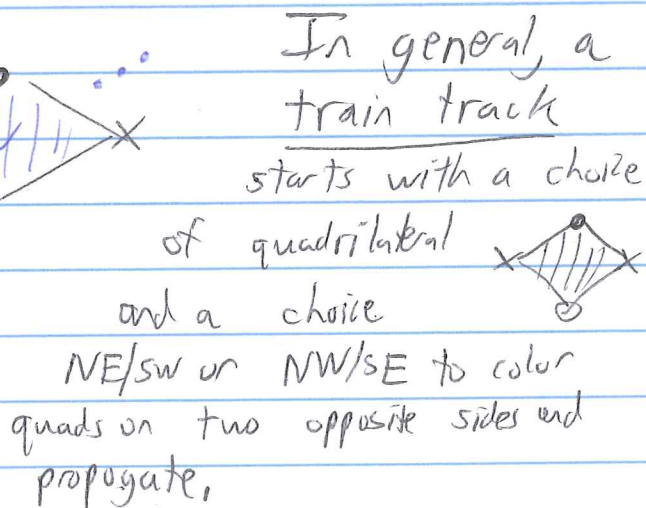 In general, a
train track
starts with a choice
of quadrilateral
and a choice
NE/SW or NW/SE to color
quads on two opposite sides and
propogate,